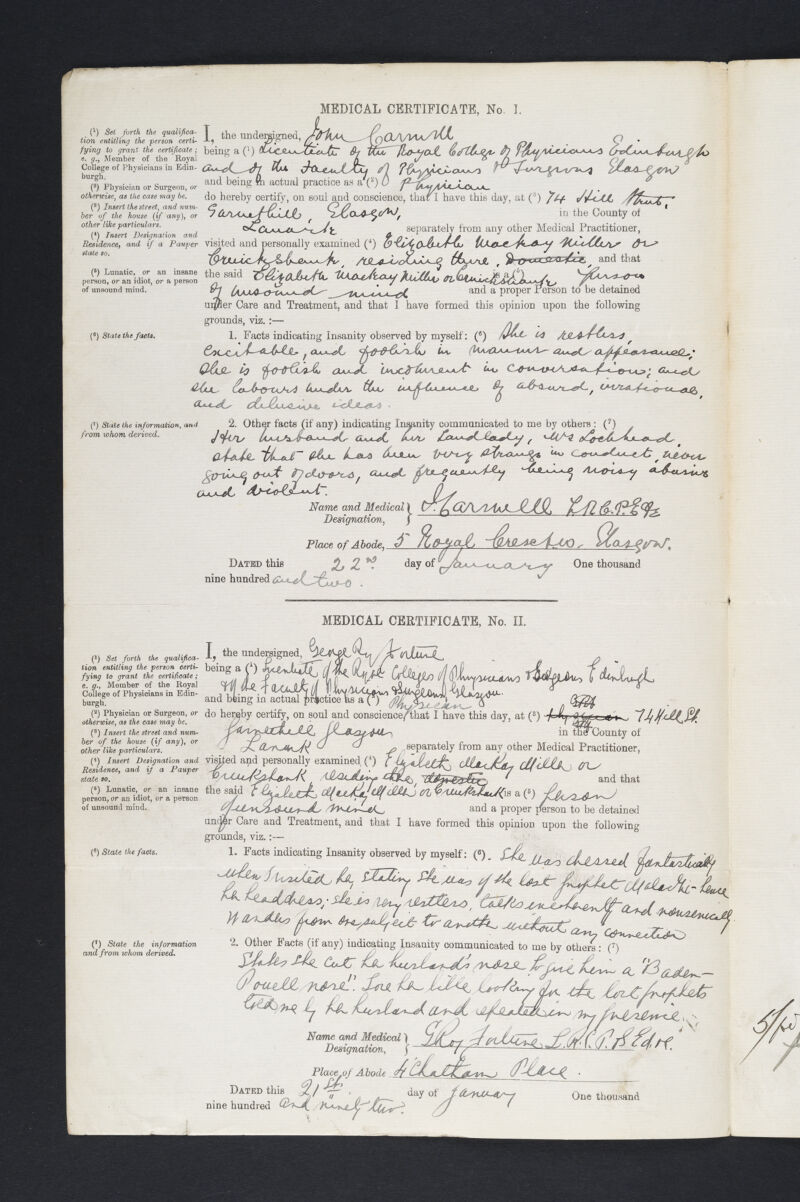 MEDICAL CERTIFICATE, No. I.
(¹) Set forth the qualifica-
tion entitling the person certi-
fying to grant the certificate;
e. g., Member of the Royal
College of Physicians in Edin-
burgh.
(²) Physician or Surgeon, or
otherwise, as the case may be.
(³) Insert the street, and num-
ber of the house (if any), or
other like particulars.
(⁴) Insert Designation and
Residence, and if a Pauper
state so.
(⁵) Lunatic, or an insane
person, or an idiot, or a person
of unsound mind.
I, the undersigned, John Carswell
being a (¹) Licentiate of the Royal College of Physicians Edinburgh
and of the Faculty of Physicians & Surgeons Glasgow
and being in actual practice as a (²) Physician
do hereby certify, on soul and conscience, that I have this day, at (³) 74 Hill Street,
Garnethill, Glasgow, in the County of
Lanark separately from any other Medical Practitioner,
visited and personally examined (⁴) Elizabeth Mackay Miller or
Cruickshank, residing there, domestic and that
the said Elizabeth Mackay Miller or Cruickshank is a (⁵) Person
of unsound mind and a proper Person to be detained
under Care and Treatment, and that I have formed this opinion upon the following
grounds, viz. :—
(⁶) State the facts.
1. Facts indicating Insanity observed by myself: (⁶) She is restless,
excitable, and foolish in manner and appearance;
she is foolish and incoherent in conversation; and
she labours under the influence of absurd, irrational,
and delusive ideas.
(⁷) State the information, and
from whom derived.
2. Other facts (if any) indicating Insanity communicated to me by others: (⁷)
Her husband and her Landlady, Mrs Lochhead,
state that she has been very strange in conduct, never
going out of doors, and frequently being noisy abusive
and violent.
Name and Medical Designation, J. Carswell L.R.C.P.E &c
Place of Abode, 5 Royal Crescent W. Glasgow.
DATED this 22nd day of January One thousand
nine hundred and two.
MEDICAL CERTIFICATE, No. II.
(¹) Set forth the qualifica-
tion entitling the person certi-
fying to grant the certificate;
e. g., Member of the Royal
College of Physicians in Edin-
burgh.
(²) Physician or Surgeon, or
otherwise, as the case may be.
(³) Insert the street and num-
ber of the house (if any), or
other like particulars.
(⁴) Insert Designation and
Residence, and if a Pauper
state so.
(⁵) Lunatic, or an insane
person, or an idiot, or a person
of unsound mind.
I, the undersigned, George Roy Fortune
being a (¹) Licentiate of the Royal Colleges of Physicians & Surgeons Edinburgh
& of the Faculty of Physicians & Surgeons Glasgow
and being in actual practice as a (²) Physician
do hereby certify, on soul and conscience, that I have this day, at (³) physician 74 Hill St.
Garnethill Glasgow in the County of
Lanark separately from any other Medical Practitioner,
visited and personally examined (⁴) Elizabeth Mackay Miller or
Cruickshank, residing there, domestic and that
the said Elizabeth Mackay Miller or Cruickshank is a (⁵) person
of unsound mind and a proper person to be detained
under Care and Treatment, and that I have formed this opinion upon the following
grounds, viz. :—
(⁶) State the facts.
1. Facts indicating Insanity observed by myself: (⁶). She was dressed fantastically
when I visited her, stating she was of the lost prophet Malachi - hence
her headdress; she is very restless, talks incoherently and nonsensically
wanders from one subject to another without any connection
(⁷) State the information
and from whom derived.
2. Other Facts (if any) indicating Insanity communicated to me by others: (⁷)
States she cut her husband's nose to give him a "Baden-
Powell nose". Tore her bible looking for the lost prophets
told me by her husband and repeated in my presence.
Name and Medical Designation, G Roy Fortune L.R.C.P. & S Edin.
Place of Abode 4 Chatham Place.
DATED this 21st day of January One thousand
nine hundred and ninety two.